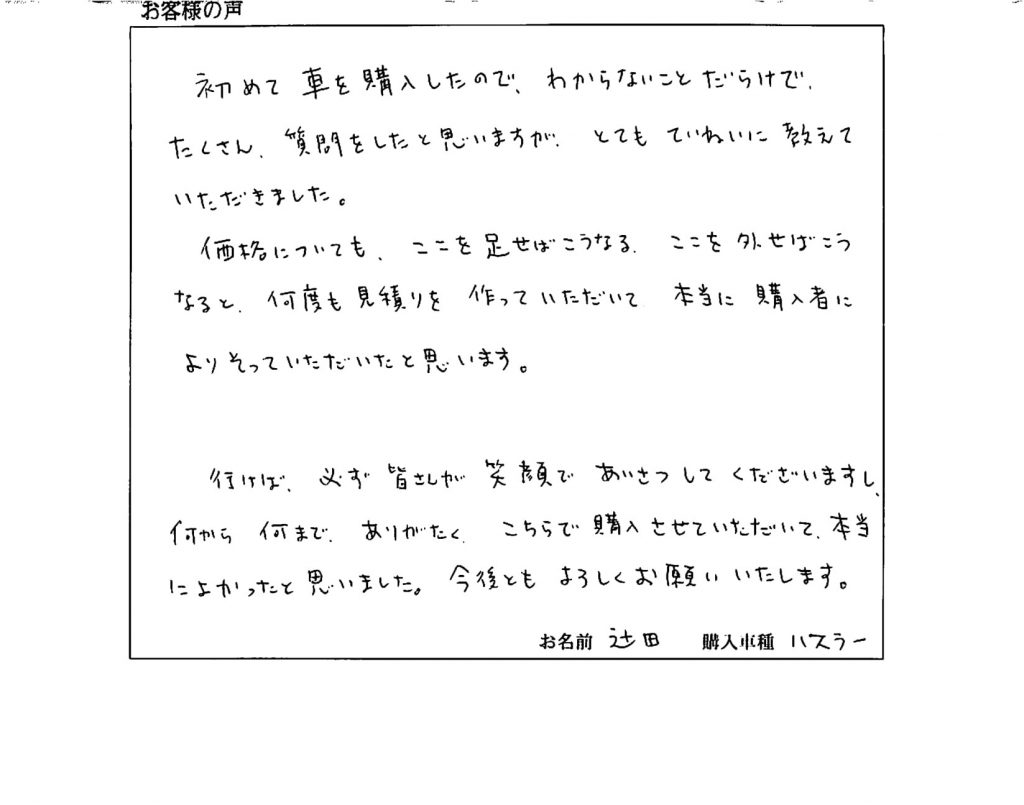 お客様の声
初めて車を購入したので、わからないことだらけで、
たくさん、質問をしたと思いますが、とてもていねいに教えて
いただきました。
価格についても、ここを足せばこうなる、ここを外せばこう
なると、何度も見積りを作っていただいて本当に購入者に
よりそっていただいたと思います。
行けば、必ず皆さんが笑顔であいさつしてくださいますし、
何から何まで、ありがたく、こちらで購入させていただいて、本当
によかったと思いました。今後ともよろしくお願いいたします。
お名前 辻田 購入車種 ハスラー